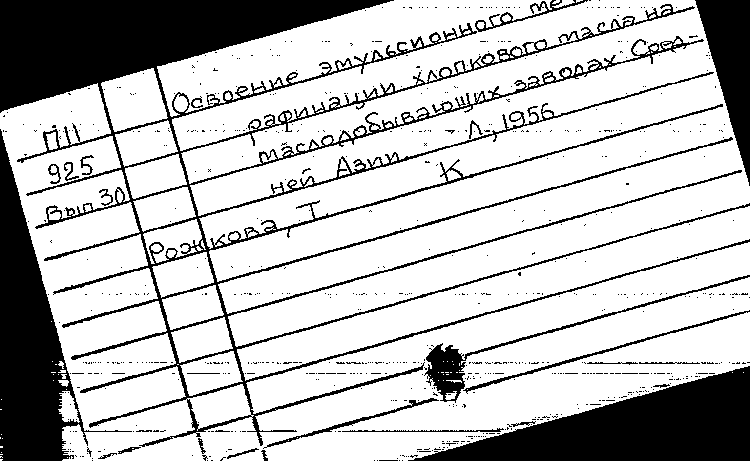 Освоение эмульсионного
рафинации хлопкового масла на
маслодобывающих заводах Сред-
ней Азии. Л., 1956
К.
П11
925
Вып.30
Рожкова, Т.